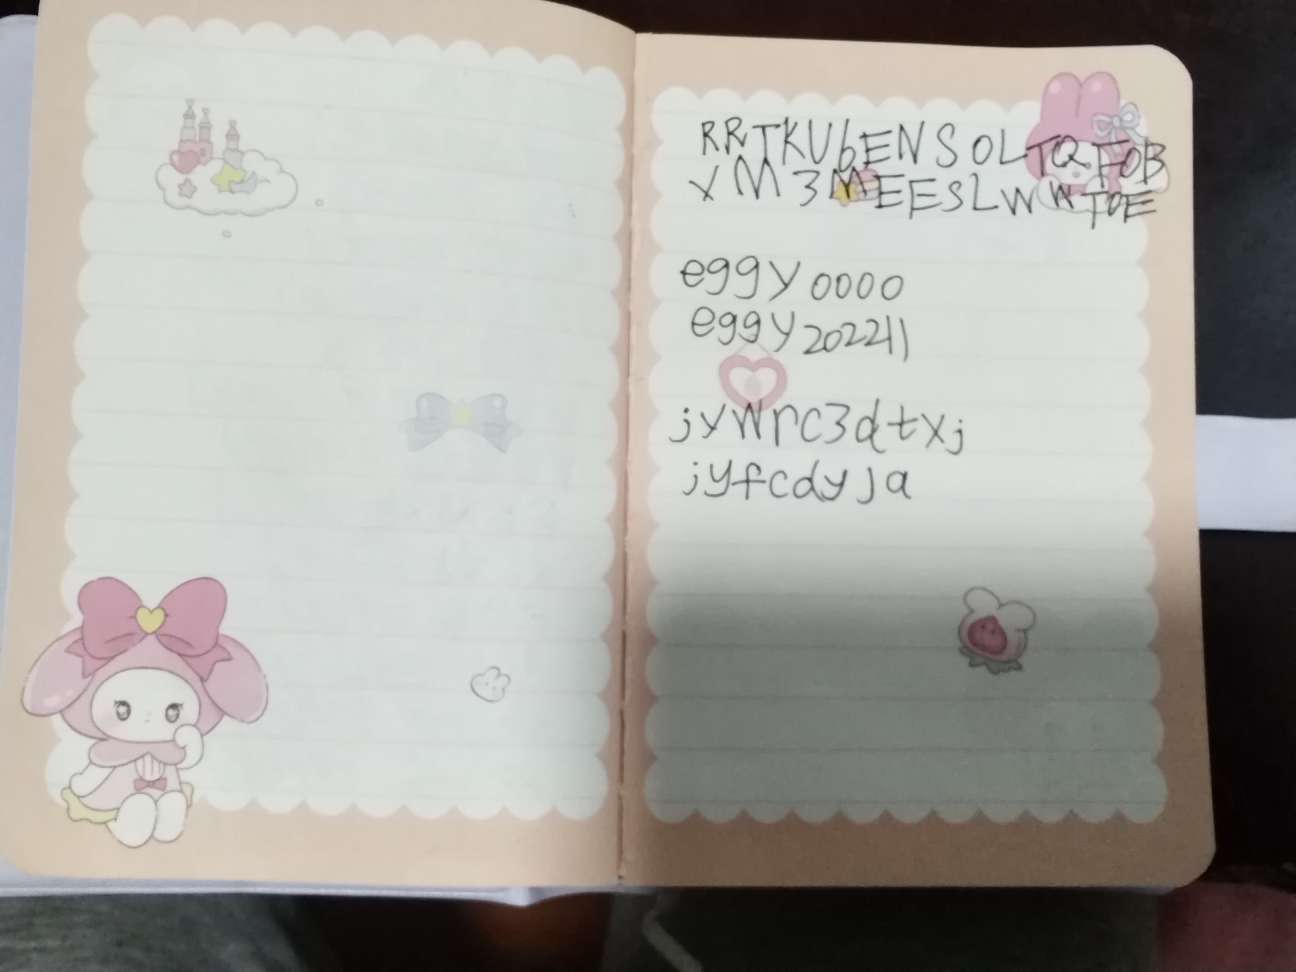 RRTKUbENSOLTQFOB
XM3MEESLWWTOE
eggy0000
eggy202211
jywrc3dtxj
jyfcdyja